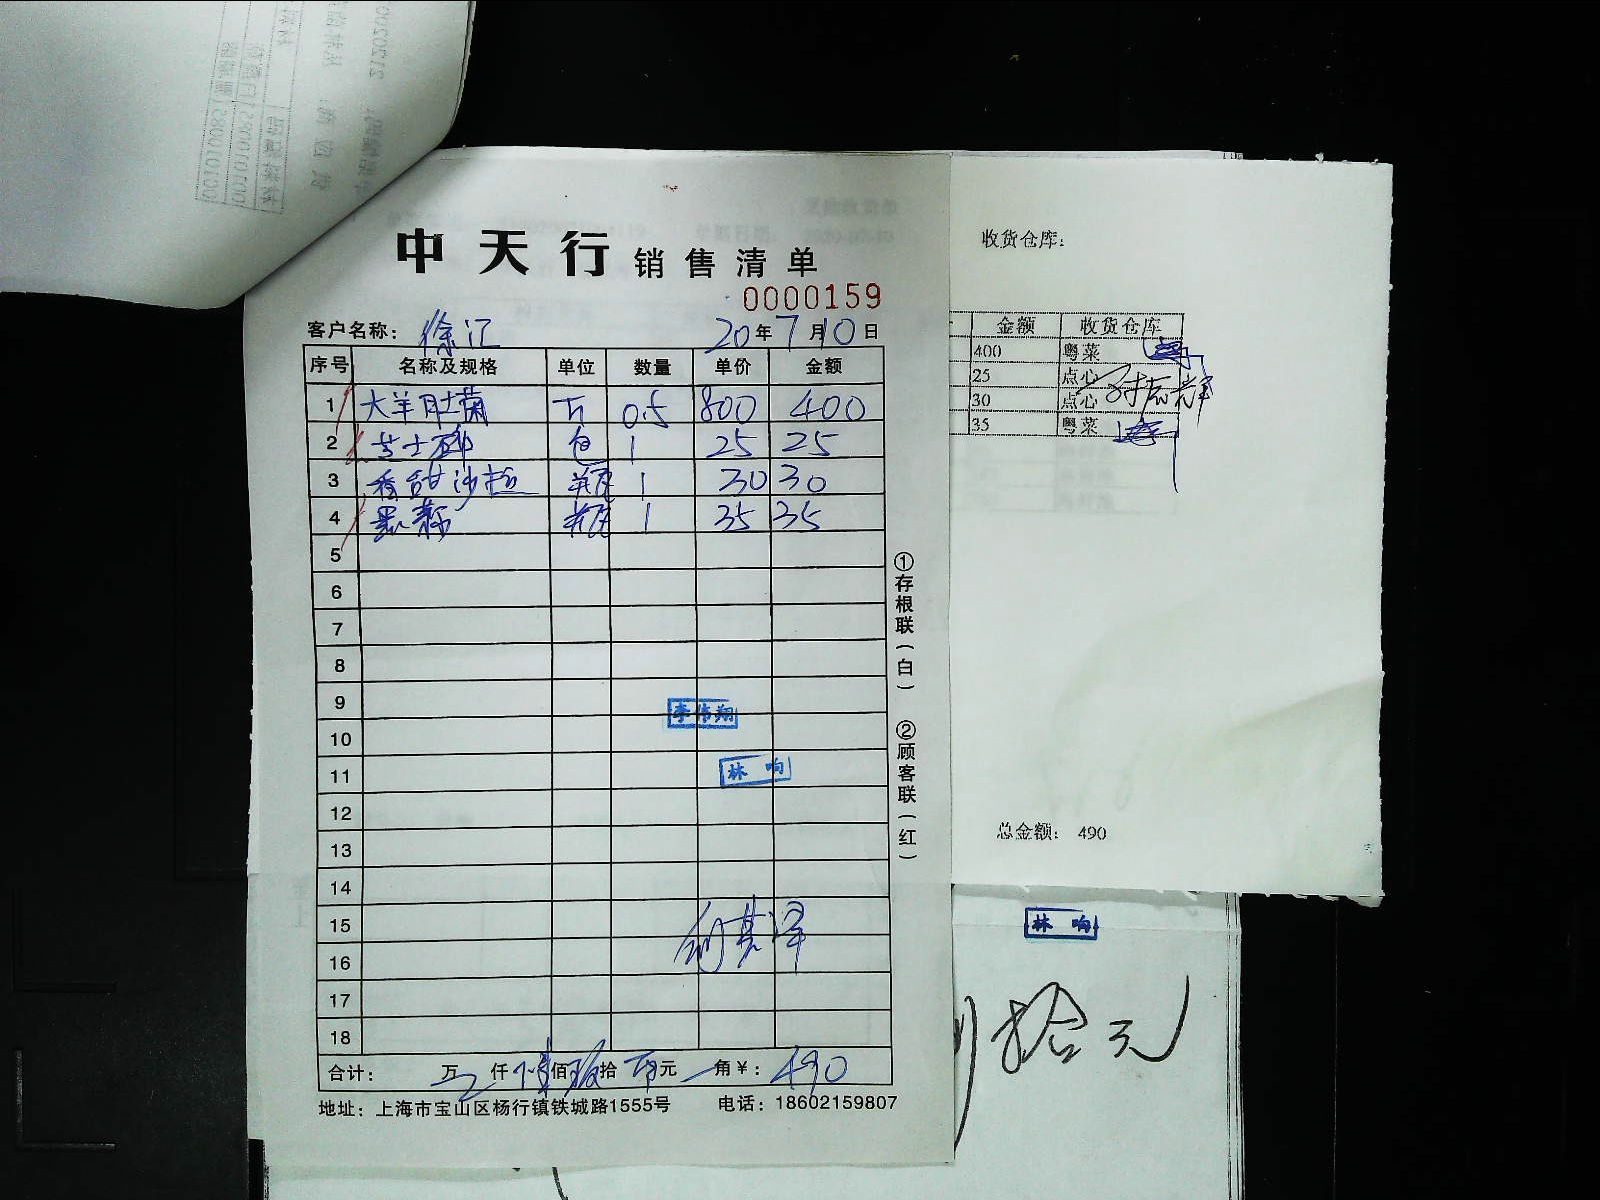 中天行 销售清单
0000159
客户名称: 徐汇 20年7月10日
序号 名称及规格 单位 数量 单价 金额
1 大羊肚菌 斤 0.5 800 400
2 芝士碎 包 1 25 25
3 香甜沙拉 瓶 1 30 30
4 1 35 35
5
6
7
8
9
10
11
12
13
14
15
16
17
18
李伟翔
林响
合计: 万 仟 佰 拾 元 角¥: 490
地址: 上海市宝山区杨行镇铁城路1555号 电话: 18602159807
①存根联(白)
②顾客联(红)
收货仓库:
金额 收货仓库
400 粤菜
25 点心
30 点心
35 粤菜
总金额: 490
林响
拾元